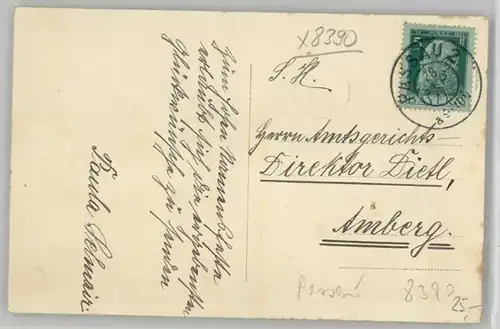 x8390
S. H.
Herrn Amtsgerichts-
Direktor Dietl,
Amberg.
Zum hohen Namensfeste
erlaubt sich die ergebensten
Glückwünsche zu senden
Paula
PASSAU
8390
25,-